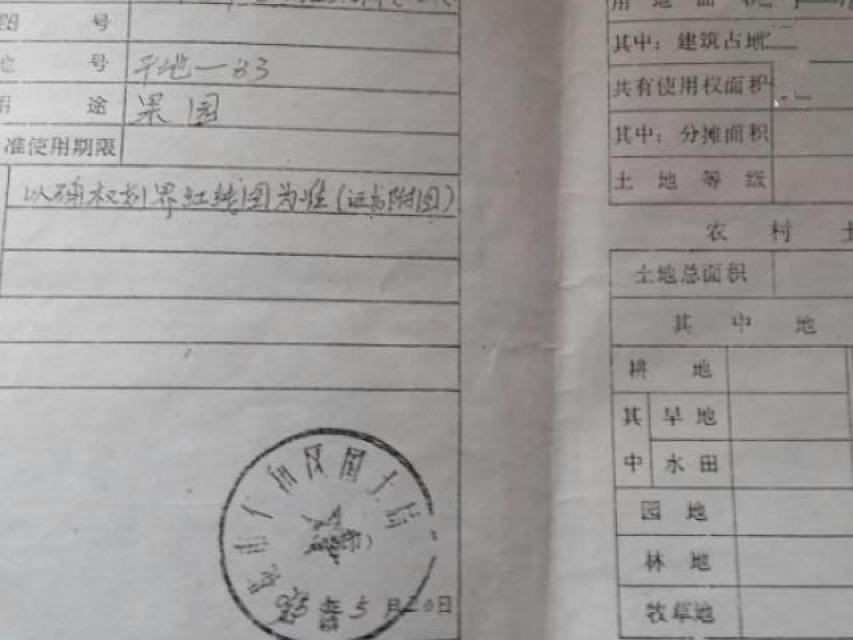 图 号
地 号 平地—83
用 途 果园
准使用期限
以确权划界红线图为准（证书附图）
95 年 5 月 20 日
用地面积
其中：建筑占地
共有使用权面积
其中：分摊面积
土地等级
农村土
土地总面积
其中地
耕地
其中 旱地
水田
园地
林地
牧草地